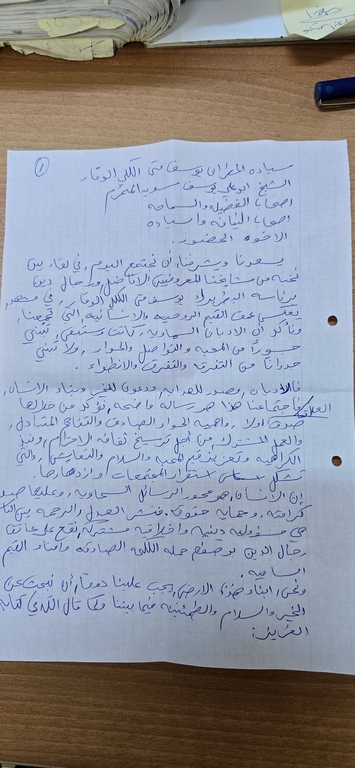 ١
سيادة المطران يوسف متى الكلي الوقار
الشيخ ابو علي يوسف سويد المحترم
اصحاب الفضيله والسماحه
اصحاب النيافه والسياده
الاخوه الحضور.
يسعدنا ويشرفنا ان نجتمع اليوم، في لقاء بين
نخبه من مشايخنا المعروفيين الافاضل، ورجال دين
برئاسه يوسف متى الكلي الوقار، في مشهد
يعكس عمق القيم الروحيه والانسانيه التي تجمعنا،
ونأكد ان الاديان السماويه، كانت وستبقى، تبني
جسوراً من المحبه والتواصل والحوار، ولا تبني
جدراناً من التفرقه والتطرف والانطواء.
فالاديان، مصدر للهدايه، ودعوى للخير وبناء الانسان،
اجتماعنا هذا رساله واضحه، نؤكد من خلالها
اولا، واهميه الحوار الصادق والتفاهم المتبادل،
والعمل المشترك، من اجل ترسيخ ثقافه الاحترام، ونبذ
الكراهيه وتعزيز قيم المحبه والسلام والتعايش، والتي
تشكل اساس استقرار المجتمعات وازدهارها.
إن الانسان، هو محور الرسائل السماويه، وعليها
كرامته، وحمايه حقوقه، فنشر العدل والرحمه بين
هي مسؤوليه دينيه واخلاقيه مشتركه، تقع على عاتق
رجال الدين بوصفهم حمله الكلمه الصادقه وامناء القيم
الساميه.
ونحن، ابناء هذه الارض، يجب علينا دوماً، ان نبحث عن
الخير والسلام والطمئنينه فيما بيننا وكما قال الله في كتابه
العزيز: